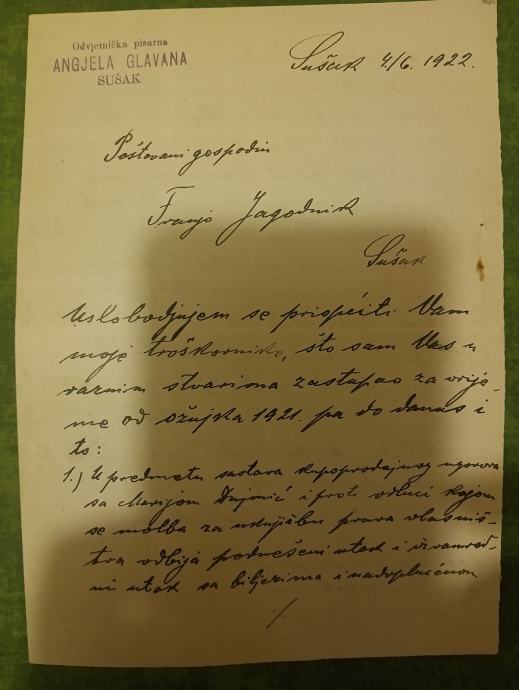 Odvjetnička pisarna
ANGJELA GLAVANA
SUŠAK
Sušak 4/6. 1922.
Poštovani gospodin
Franjo Jagodnik
Sušak
Uslobodjujem se pripćiti Vam
moje troškovnike, što sam Vas u
raznim stvarima zastupao za vrije-
me od ožujka 1921. pa do danas i
to:
1.) U predmetu sastava kupoprodajnog ugovora
sa Marijom i proti odluci kojom
se molba za uknjižbu prava vlasniš-
tva odbija podnešeni utok i izvanred-
ni utok sa biljezima i nadoplaćenom
./.